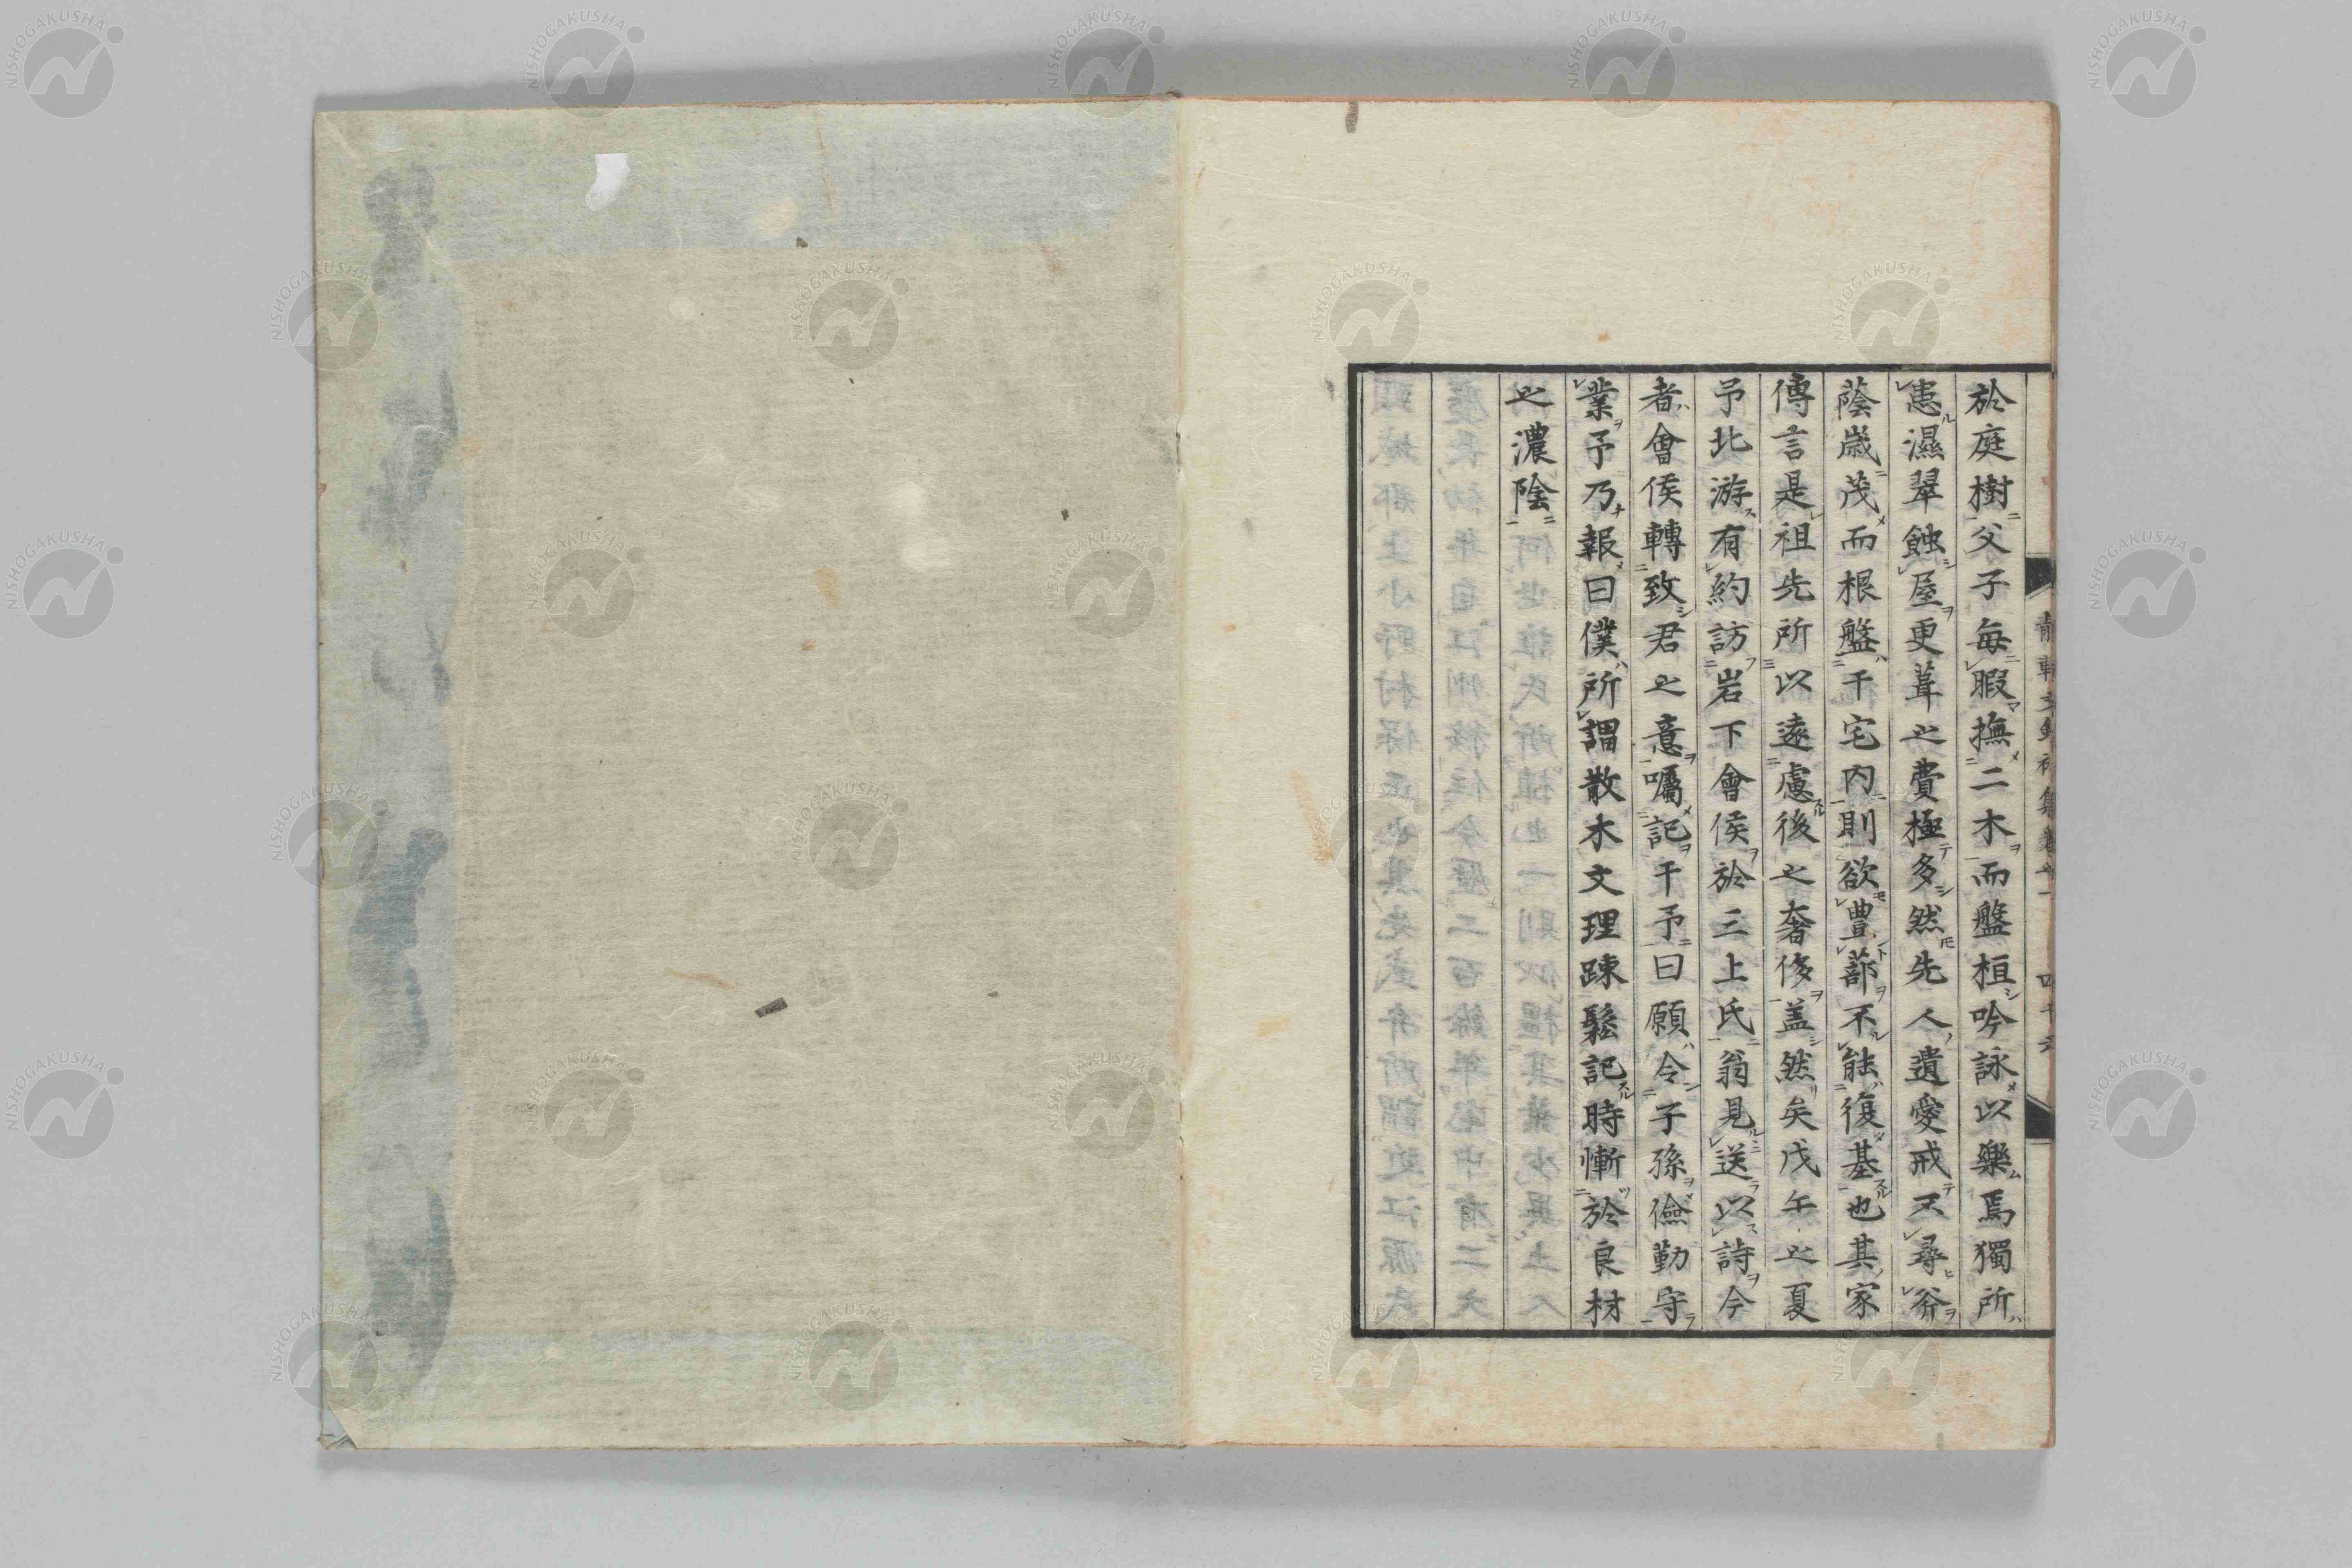 於庭樹父子每暇撫二木而盤桓吟詠以樂焉獨所
患濕翠蝕屋更葺之費極多然先人遺愛戒不尋斧
蔭歲茂而根盤于宅内則欲豐蔀不能復基也其家
傳言是祖先所以遠慮後之奢侈盖然矣戊午之夏
予北游有約訪岩下會侯於三上氏翁見送以詩今
者會侯轉致君之意囑記于予曰願令子孫儉勤守
業予乃報曰僕所謂散木文理踈鬆記時慚於良材
之濃陰
NISHOGAKUSHA